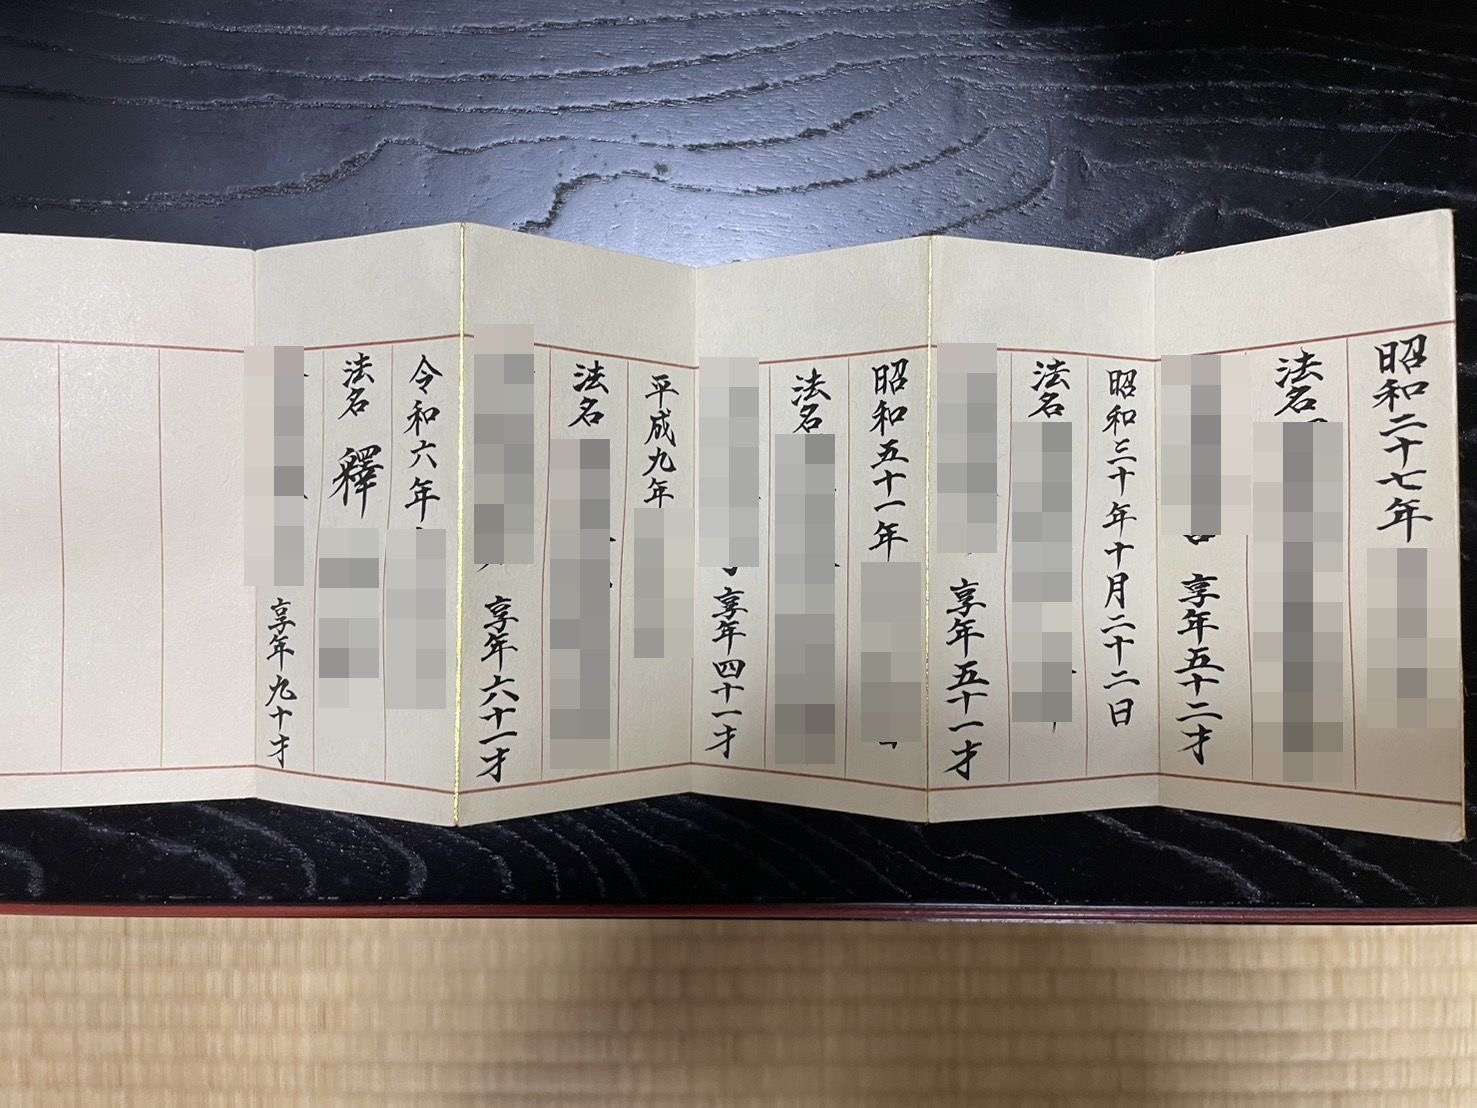 昭和二十七年
法名
享年五十二才
昭和三十年十月二十二日
法名
享年五十一才
昭和五十一年
法名
享年四十一才
平成九年
法名
享年六十一才
令和六年
法名 釋
享年九十才